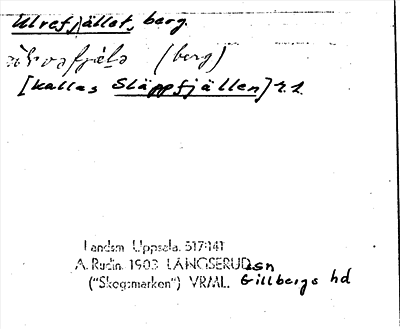 Ulrefjället, berg.
(berg)
[kallas Släppfjällen] r. l.
Landsm. Uppsala. 517:141
A. Rudin. 1903. LÅNGSERUD sn
("Skogsmarken") VRML. Gillbergs hd